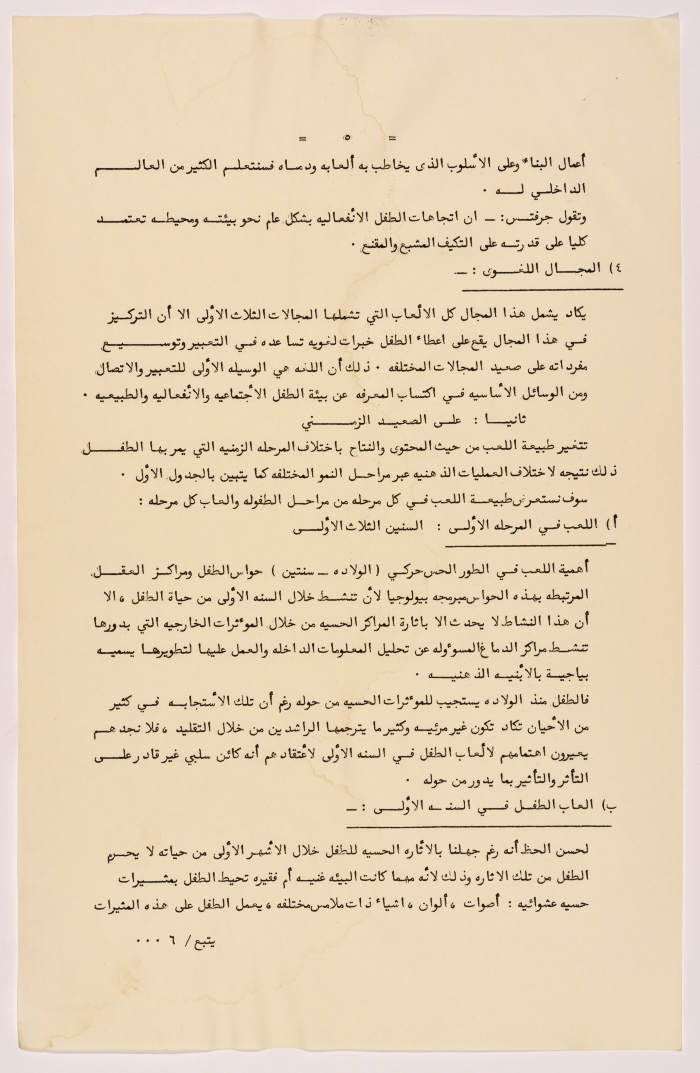 = ٥ =
أعمال البناء وعلى الأسلوب الذى يخاطب به ألعابه ودماه فسنتعلم الكثير من العالم
الداخلي له ٠
وتقول جرفتس: ـ ان اتجاهات الطفل الانفعاليه بشكل عام نحو بيئته ومحيطه تعتمد
كليا على قدرته على التكيف المشبع والمقنع ٠
٤) المجال اللغوى : ـ
يكاد يشمل هذا المجال كل الألعاب التي تشملها المجالات الثلاث الأولى الا أن التركيز
في هذا المجال يقع على اعطاء الطفل خبرات لغويه تساعده في التعبير وتوسيع
مفرداته على صعيد المجالات المختلفه ٠ ذلك أن اللغه هي الوسيله الأولى للتعبير والاتصال
ومن الوسائل الأساسيه في اكتساب المعرفه عن بيئة الطفل الأجتماعيه والأنفعاليه والطبيعيه ٠
ثانيا : على الصعيد الزمني
تتغير طبيعة اللعب من حيث المحتوى والنتاج باختلاف المرحله الزمنيه التي يمر بها الطفل
ذلك نتيجه لاختلاف العمليات الذهنيه عبر مراحل النمو المختلفه كما يتبين بالجدول الأول ٠
سوف نستعرض طبيعة اللعب في كل مرحله من مراحل الطفوله والعاب كل مرحله :
أ) اللعب في المرحله الأولى : السنين الثلاث الأولى
أهمية اللعب في الطور الحس حركي ( الولاده ـ سنتين ) حواس الطفل ومراكز العقل
المرتبطه بهذه الحواس مبرمجه بيولوجيا لأن تنشط خلال السنه الأولى من حياة الطفل ، الا
أن هذا النشاط لا يحدث الا باثارة المراكز الحسيه من خلال الموءثرات الخارجيه التي بدورها
تنشط مراكز الدماغ المسوءوله عن تحليل المعلومات الداخله والعمل عليها لتطويرها يسميه
بياجية بالأبنيه الذهنيه ٠
فالطفل منذ الولاده يستجيب للموءثرات الحسيه من حوله رغم أن تلك الأستجابه في كثير
من الأحيان تكاد تكون غير مرئيه وكثير ما يترجمها الراشدين من خلال التقليد ، فلا نجدهم
يعيرون اهتمامهم لألعاب الطفل في السنه الأولى لأعتقادهم أنه كائن سلبي غير قادر على
التأثر والتأثير بما يدور من حوله ٠
ب) العاب الطفل في السنه الأولى : ـ
لحسن الحظ أنه رغم جهلنا بالاثاره الحسيه للطفل خلال الأشهر الأولى من حياته لا يحرم
الطفل من تلك الاثاره وذلك لأنه مهما كانت البيئه غنيه أم فقيره تحيط الطفل بمثيرات
حسيه عشوائيه : أصوات ، ألوان ، اشياء ذات ملامس مختلفه ، يعمل الطفل على هذه المثيرات
يتبع / ٦ ٠٠٠